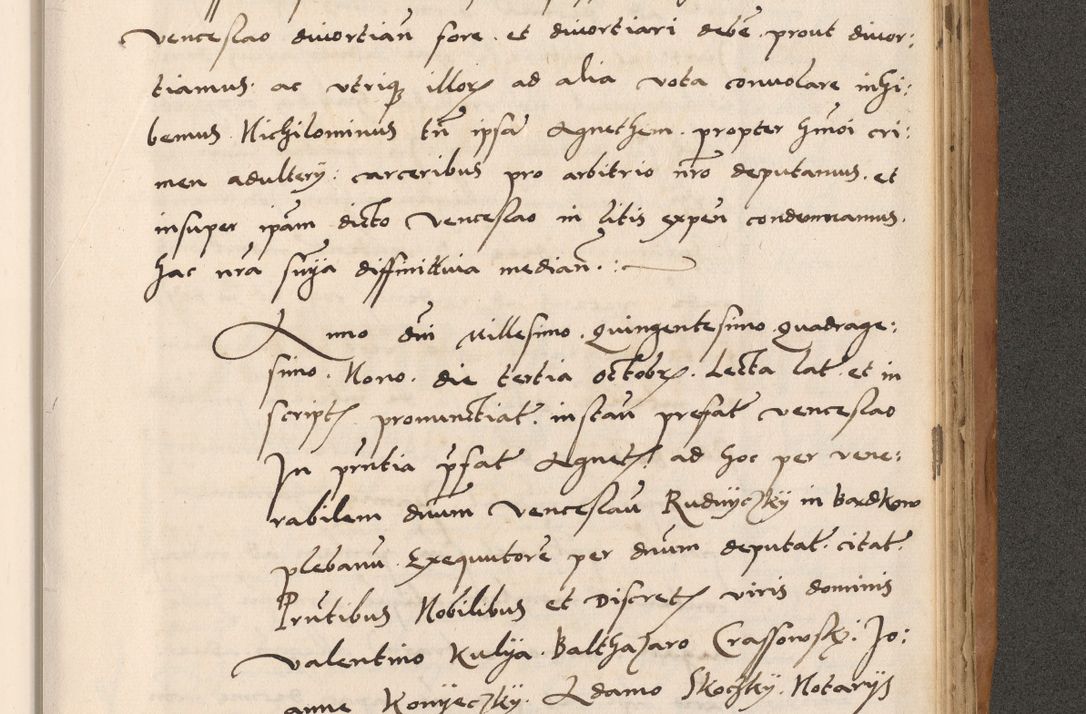 Venceslao diuortian̄ fore. et diuortiari debē. prout diuor:
tiamus. ac vtriq illor ad alia vota conuolare inhi:
bemus. Nichilominus tn̄ ipsā Agnethem. propter hmōi cri:
men adultery: carceribus pro arbitrio nr̄o deputamus. et
insuper ip̄am dicto Venceslao in litis expen̄ condemnamus.
hac nr̄a sn̄ia diffinitiuia median̄.:
Anno dn̄i Millesimo. Quingentesimo. Quadrage:
simo. Nono. die tertia octobr. Lecta lat. et in
script pronunctiat. instan̄ prefat venceslao
In pn̄tia p̄fat Agnet. ad hoc per vene:
rabilem dn̄um Venceslau Rudnyczky in Bardkow
plebanū. Exequutorē per dn̄um deputat. citat.
Prn̄tibus Nobilibus et Discret viris dominis
Valentino Kulya. Balthazaro Crassowsky. Jo:
anne Konyeczky. Adamo Skoczky. Notarijs